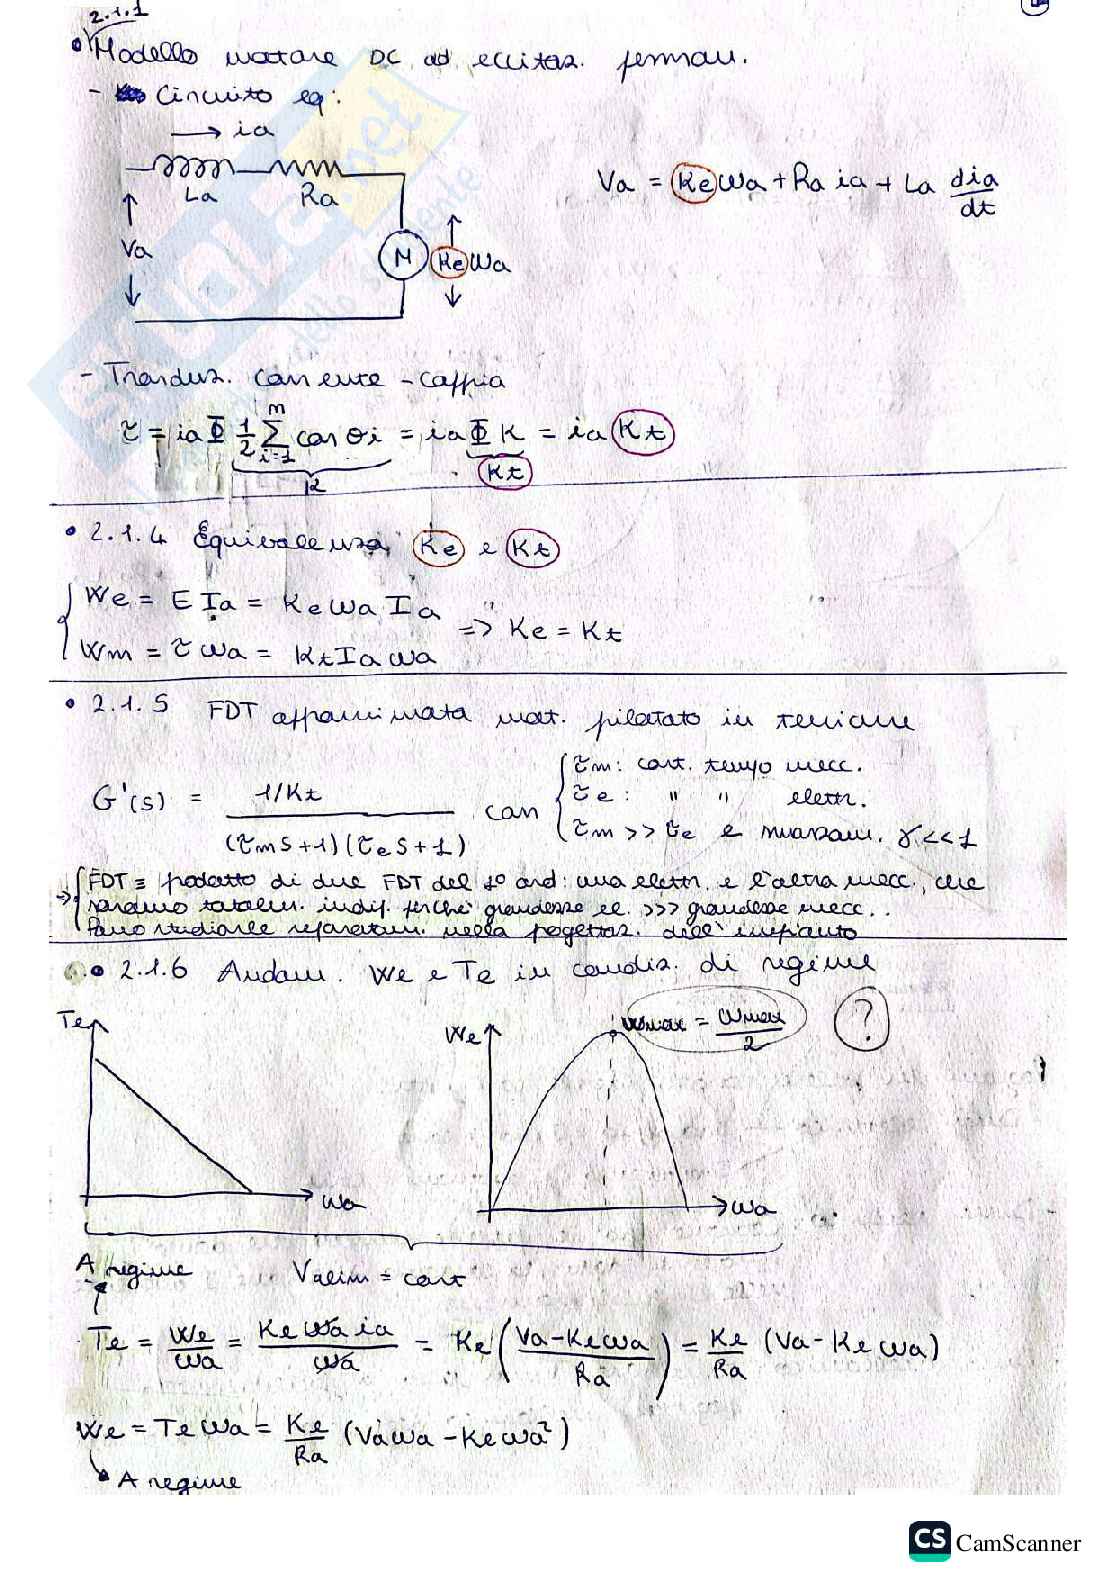 2.1.1
• Modello motore DC ad eccitaz. perman.
- Circuito eq:
→ ia
La Ra
Va
M Ke ωa
Va = Ke ωa + Ra ia + La dia/dt
- Trasduz. corrente - coppia
τ = ia Φ 1/2 Σ cos θi = ia Φ K = ia Kt
m
i=1
K
Kt
• 2.1.4 Equivalenza Ke e Kt
We = E Ia = Ke ωa Ia
Wm = τ ωa = Kt Ia ωa
=> Ke = Kt
• 2.1.5 FDT approssimata mot. pilotato in tensione
G'(s) = 1/Kt / (τm s + 1)(τe s + 1) con
τm: cost. tempo mecc.
τe: " " elettr.
τm >> τe e γ << 1
→ FDT ≡ prodotto di due FDT del 1° ord: una elettr. e l'altra mecc., che
saranno totalm. indip. perché grandezze el. >>> grandezze mecc..
Posso studiarle separatam. nella progettaz. dell'impianto
• 2.1.6 Andam. We e Te in condiz. di regime
Te
ωa
We
ωmax / 2
?
ωa
A regime
Valim = cost
Te = We/ωa = Ke ωa ia/ωa = Ke (Va - Ke ωa / Ra) = Ke/Ra (Va - Ke ωa)
We = Te ωa = Ke/Ra (Va ωa - Ke ωa²)
A regime
CS CamScanner